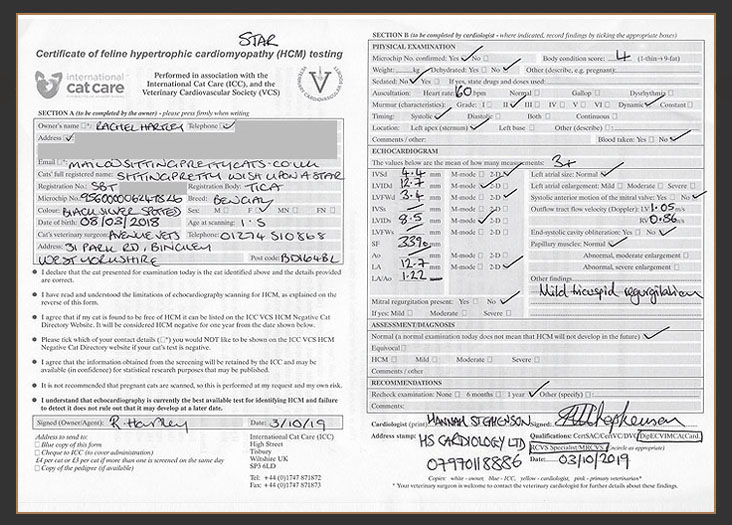 STAR
Certificate of feline hypertrophic cardiomyopathy (HCM) testing
international
cat care
Performed in association with the
International Cat Care (ICC), and the
Veterinary Cardiovascular Society (VCS)
VETERINARY CARDIOVASCULAR SOCIETY
SECTION A (to be completed by the owner) - please press firmly when writing
Owner's name: RACHEL HARTLEY Telephone
Address
Email MAIL@SITTINGPRETTYCATS.CO.UK
Cats' full registered name: SITTINGPRETTY WISH UPON A STAR
Registration No.: SBT Registration Body: TICA
Microchip No. Breed: BENGAL
Colour: BLACK SILVER SPOTTED Sex: M F MN FN
Date of birth: 08/03/2018 Age at scanning: 1.5
Cat's veterinary surgeon: AVENUE VETS Telephone: 01274 510868
Address: 31 PARK RD, BINGLEY
WEST YORKSHIRE Post code: BD16 4BL
• I declare that the cat presented for examination today is the cat identified above and the details provided
are correct.
• I have read and understood the limitations of echocardiography scanning for HCM, as explained on the
reverse of this form.
• I agree that if my cat is found to be free of HCM it can be listed on the ICC VCS HCM Negative Cat
Directory Website. It will be considered HCM negative for one year from the date shown below.
• Please tick which of your contact details (□*) you would NOT like to be shown on the ICC VCS HCM
Negative Cat Directory website if your cat's test is negative.
• I agree that the information obtained from the screening will be retained by the ICC and may be
available (in confidence) for statistical research purposes that may be published.
• It is not recommended that pregnant cats are scanned, so this is performed at my request and my own risk.
• I understand that echocardiography is currently the best available test for identifying HCM and failure
to detect it does not rule out that it may develop at a later date.
Signed (Owner/Agent): R Hartley Date: 3/10/19
Address to send to:
Blue copy of this form
Cheque to ICC (to cover administration)
£4 per cat or £3 per cat if more than one is screened on the same day
Copy of the pedigree (if available)
International Cat Care (ICC)
High Street
Tisbury
Wiltshire UK
SP3 6LD
Tel: +44 (0)1747 871872
Fax: +44 (0)1747 871873
SECTION B (to be completed by cardiologist - where indicated, record findings by ticking the appropriate boxes)
PHYSICAL EXAMINATION
Microchip No. confirmed: Yes No Body condition score: 4 (1-thin→9-fat)
Weight: kg Dehydrated: Yes No Other (describe, e.g. pregnant):
Sedated: No Yes If yes, state drugs and doses used:
Auscultation: Heart rate: 160 bpm Normal Gallop Dysrhythmia
Murmur (characteristics) Grade: I II III IV V VI Dynamic Constant
Timing: Systolic Diastolic Both Continuous
Location: Left apex (sternum) Left base Other (describe)
Comments / other: Blood taken: Yes No
ECHOCARDIOGRAM
The values below are the mean of how many measurements: 3+
IVSd 4.4 mm M-mode 2-D Left atrial size: Normal
LVIDd 12.7 mm M-mode 2-D Left atrial enlargement: Mild Moderate Severe
LVFWd 3.4 mm M-mode 2-D Systolic anterior motion of the mitral valve: Yes No
IVSs mm M-mode 2-D Outflow tract flow velocity (Doppler): LV 1.05 m/s
LVIDs 8.5 mm M-mode 2-D RV 0.86 m/s
LVFWs mm M-mode 2-D End-systolic cavity obliteration: Yes No
SF 33% mm Papillary muscles: Normal
Ao mm M-mode 2-D Abnormal, moderate enlargement
LA 12.7 mm M-mode 2-D Abnormal, severe enlargement
LA/Ao 1.22 Other findings
Mild tricuspid regurgitation
Mitral regurgitation present: Yes No
If yes: Mild Moderate Severe
ASSESSMENT/DIAGNOSIS
Normal (a normal examination today does not mean that HCM will not develop in the future)
Equivocal
HCM Mild Moderate Severe
Comments / other
RECOMMENDATIONS
Recheck examination: None 6 months 1 year Other (specify):
Comments:
Cardiologist (print) HANNAH STEPHENSON Signed: HM Stephenson
Address stamp: HS CARDIOLOGY LTD Qualifications: CertSAC/CertVC/DVC/DipECVIMCA(Card.
RCVS Specialist/MRCVS (circle as appropriate)
07970118886 Date: 03/10/2019
Copies: white - owner, blue - ICC, yellow - cardiologist, pink - primary veterinarian*
* Your veterinary surgeon is welcome to contact the veterinary cardiologist for further details about these findings.